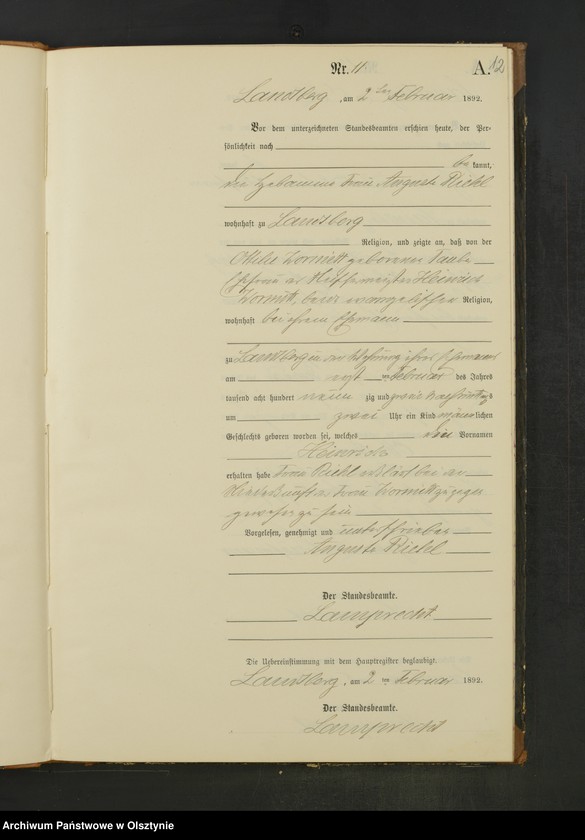 Nr. 11.
A. 12
Landsberg, am 2 ten Februar 1892.
Vor dem unterzeichneten Standesbeamten erschien heute, der Per-
sönlichkeit nach
be kannt,
die Hebamme Frau Auguste Riehl
wohnhaft zu Landsberg
Religion, und zeigte an, daß von der
Wormitt geborenen Taube
Ehefrau des Heinrich
Wormitt, beide evangelischer Religion,
wohnhaft bei ihrem Ehemann
zu Landsberg in der Wohnung ihres Ehemannes
am ersten Februar des Jahres
tausend acht hundert neun zig und zwei Nachmittags
um zwei Uhr ein Kind männlichen
Geschlechts geboren worden sei, welches den Vornamen
Heinrich
erhalten habe Frau Riehl erklärt bei der
Niederkunft der Frau Wormitt zugegen
gewesen zu sein
Vorgelesen, genehmigt und unterschrieben
Auguste Riehl
Der Standesbeamte.
Lamprecht
Die Uebereinstimmung mit dem Hauptregister beglaubigt.
Landsberg, am 2 ten Februar 1892.
Der Standesbeamte.
Lamprecht
Archiwum Państwowe w Olsztynie